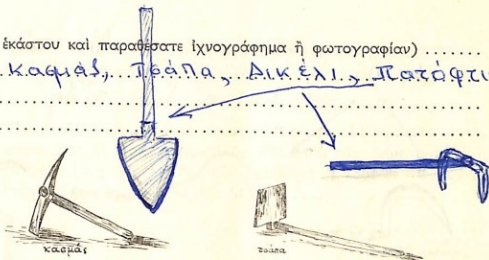 ἑκάστου καὶ παραθέσατε ἰχνογράφημα ἢ φωτογραφίαν) ......
Κασμάς, Τσάπα, Δικέλι, Πατόφτι
κασμάς
τσάπα